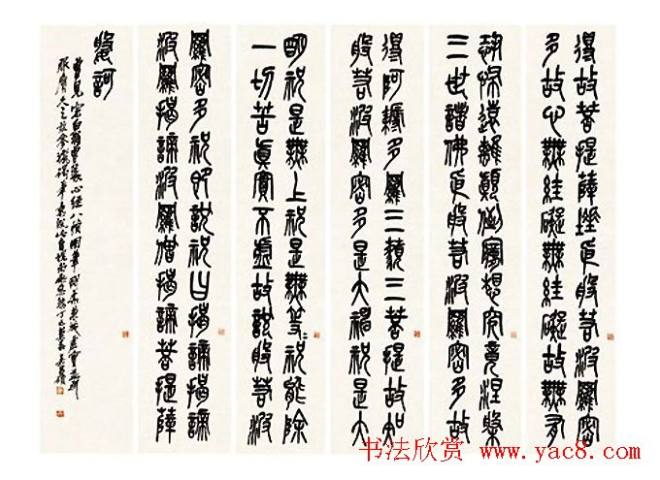 得故菩提薩埵依般若波羅密
多故心無罣礙無罣礙故無有
恐怖遠離顛倒夢想究竟涅槃
三世諸佛依般若波羅密多故
得阿耨多羅三藐三菩提故知
般若波羅密多是大神祝是大
明祝是無上祝是無等〻祝能除
一切苦真實不虛故說般若波
羅密多祝即說祝曰揭諦揭諦
波羅揭諦波羅僧揭諦菩提薩
婆訶
曾見完白翁 心經八幀用筆 丁巳 吳昌碩
书法欣赏 www.yac8.com